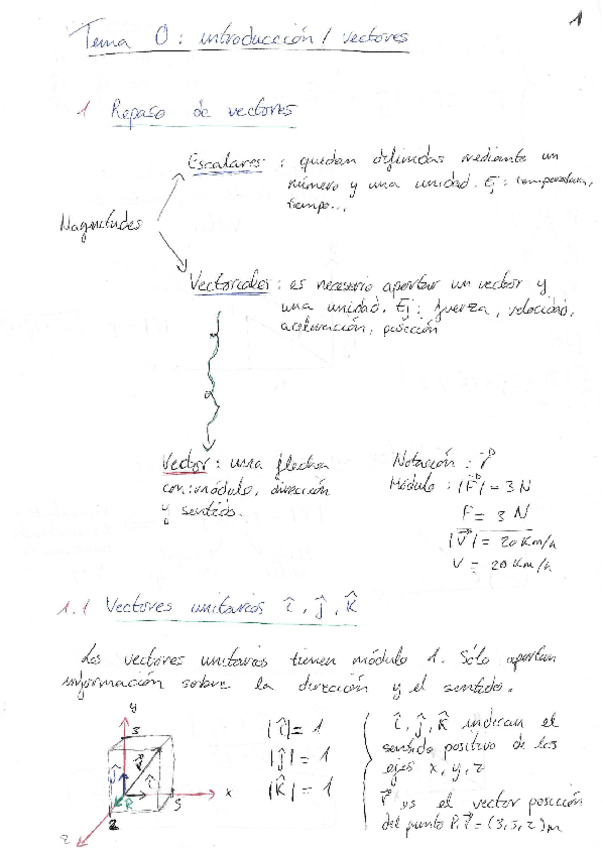 1
Tema 0: introducción / vectores
1 Repaso de vectores
Escalares: quedan definidas mediante un
número y una unidad. Ej: temperatura,
tiempo...
Magnitudes
Vectoriales: es necesario aportar un vector y
una unidad. Ej: fuerza, velocidad,
aceleración, posición
Vector: una flecha
con: módulo, dirección
y sentido.
Notación: r⃗
Módulo: |F⃗| = 3 N
F = 3 N
|V⃗| = 20 Km/h
V = 20 Km/h
1.1 Vectores unitarios î, ĵ, k̂
Los vectores unitarios tienen módulo 1. Sólo aportan
información sobre la dirección y el sentido.
y
3
x
z
2
|î| = 1
|ĵ| = 1
|k̂| = 1
î, ĵ, k̂ indican el
sentido positivo de los
ejes x, y, z
r⃗ es el vector posición
del punto P. r⃗ =